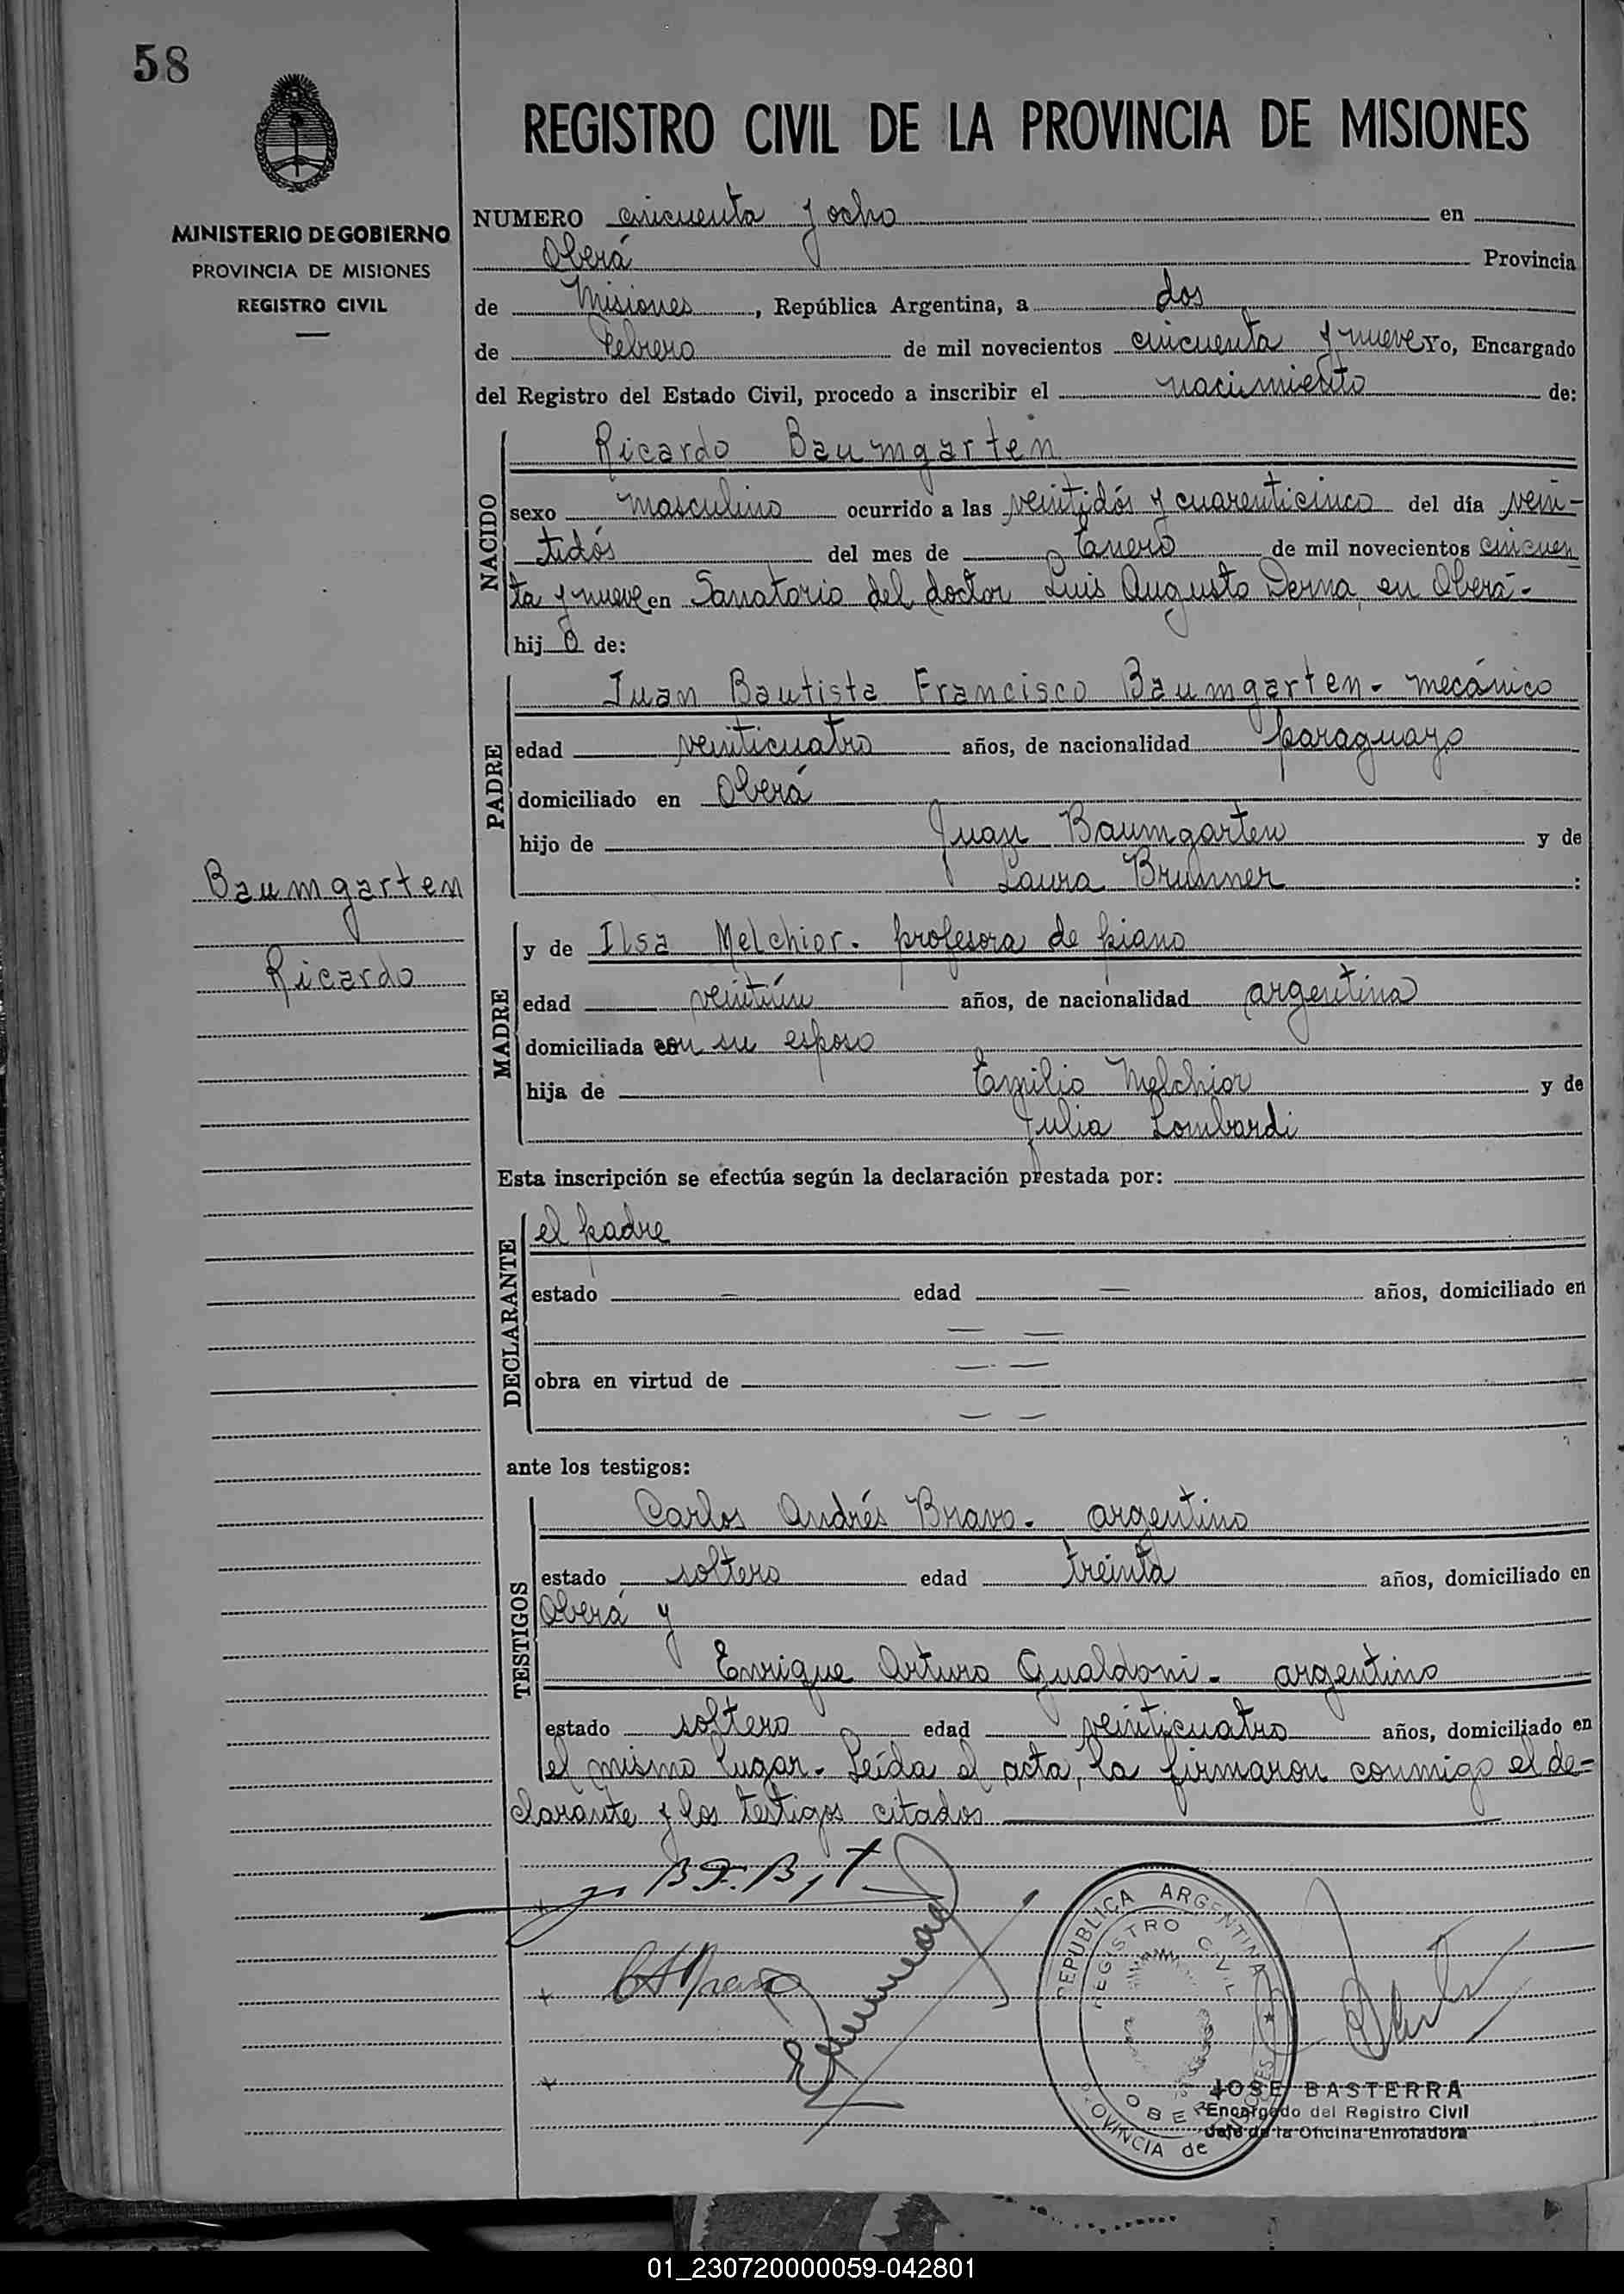 58
REGISTRO CIVIL DE LA PROVINCIA DE MISIONES
MINISTERIO DE GOBIERNO
PROVINCIA DE MISIONES
REGISTRO CIVIL
NUMERO cincuenta y ocho en
Oberá Provincia
de Misiones, República Argentina, a dos
de Febrero de mil novecientos cincuenta y nueve Yo, Encargado
del Registro del Estado Civil, procedo a inscribir el nacimiento de:
NACIDO
Ricardo Baumgarten
sexo masculino ocurrido a las veintidós y cuarenticinco del día vein-
tidós del mes de Enero de mil novecientos cincuen
ta y nueve en Sanatorio del doctor Luis Augusto Derna, en Oberá-
hijo de:
PADRE
Juan Bautista Francisco Baumgarten- mecánico
edad veinticuatro años, de nacionalidad paraguayo
domiciliado en Oberá
hijo de Juan Baumgarten y de
Laura Brunner :
Baumgarten
Ricardo
MADRE
y de Ilsa Melchior. profesora de piano
edad veintiún años, de nacionalidad argentina
domiciliada con su esposo
hija de Emilio Melchior y de
Julia Lombardi
Esta inscripción se efectúa según la declaración prestada por:
DECLARANTE
el padre
estado — edad — años, domiciliado en
— —
obra en virtud de — —
— —
ante los testigos:
TESTIGOS
Carlos Andrés Bravo- argentino
estado soltero edad treinta años, domiciliado en
Oberá y
Enrique Arturo Gualdoni- argentino
estado soltero edad veinticuatro años, domiciliado en
el mismo lugar- Leída el acta, la firmaron conmigo el de-
clarante y los testigos citados
REPUBLICA ARGENTINA
REGISTRO CIVIL
OBERA
PROVINCIA de MISIONES
JOSE BASTERRA
Encargado del Registro Civil
Jefe de la Oficina Enroladora
01_230720000059-042801